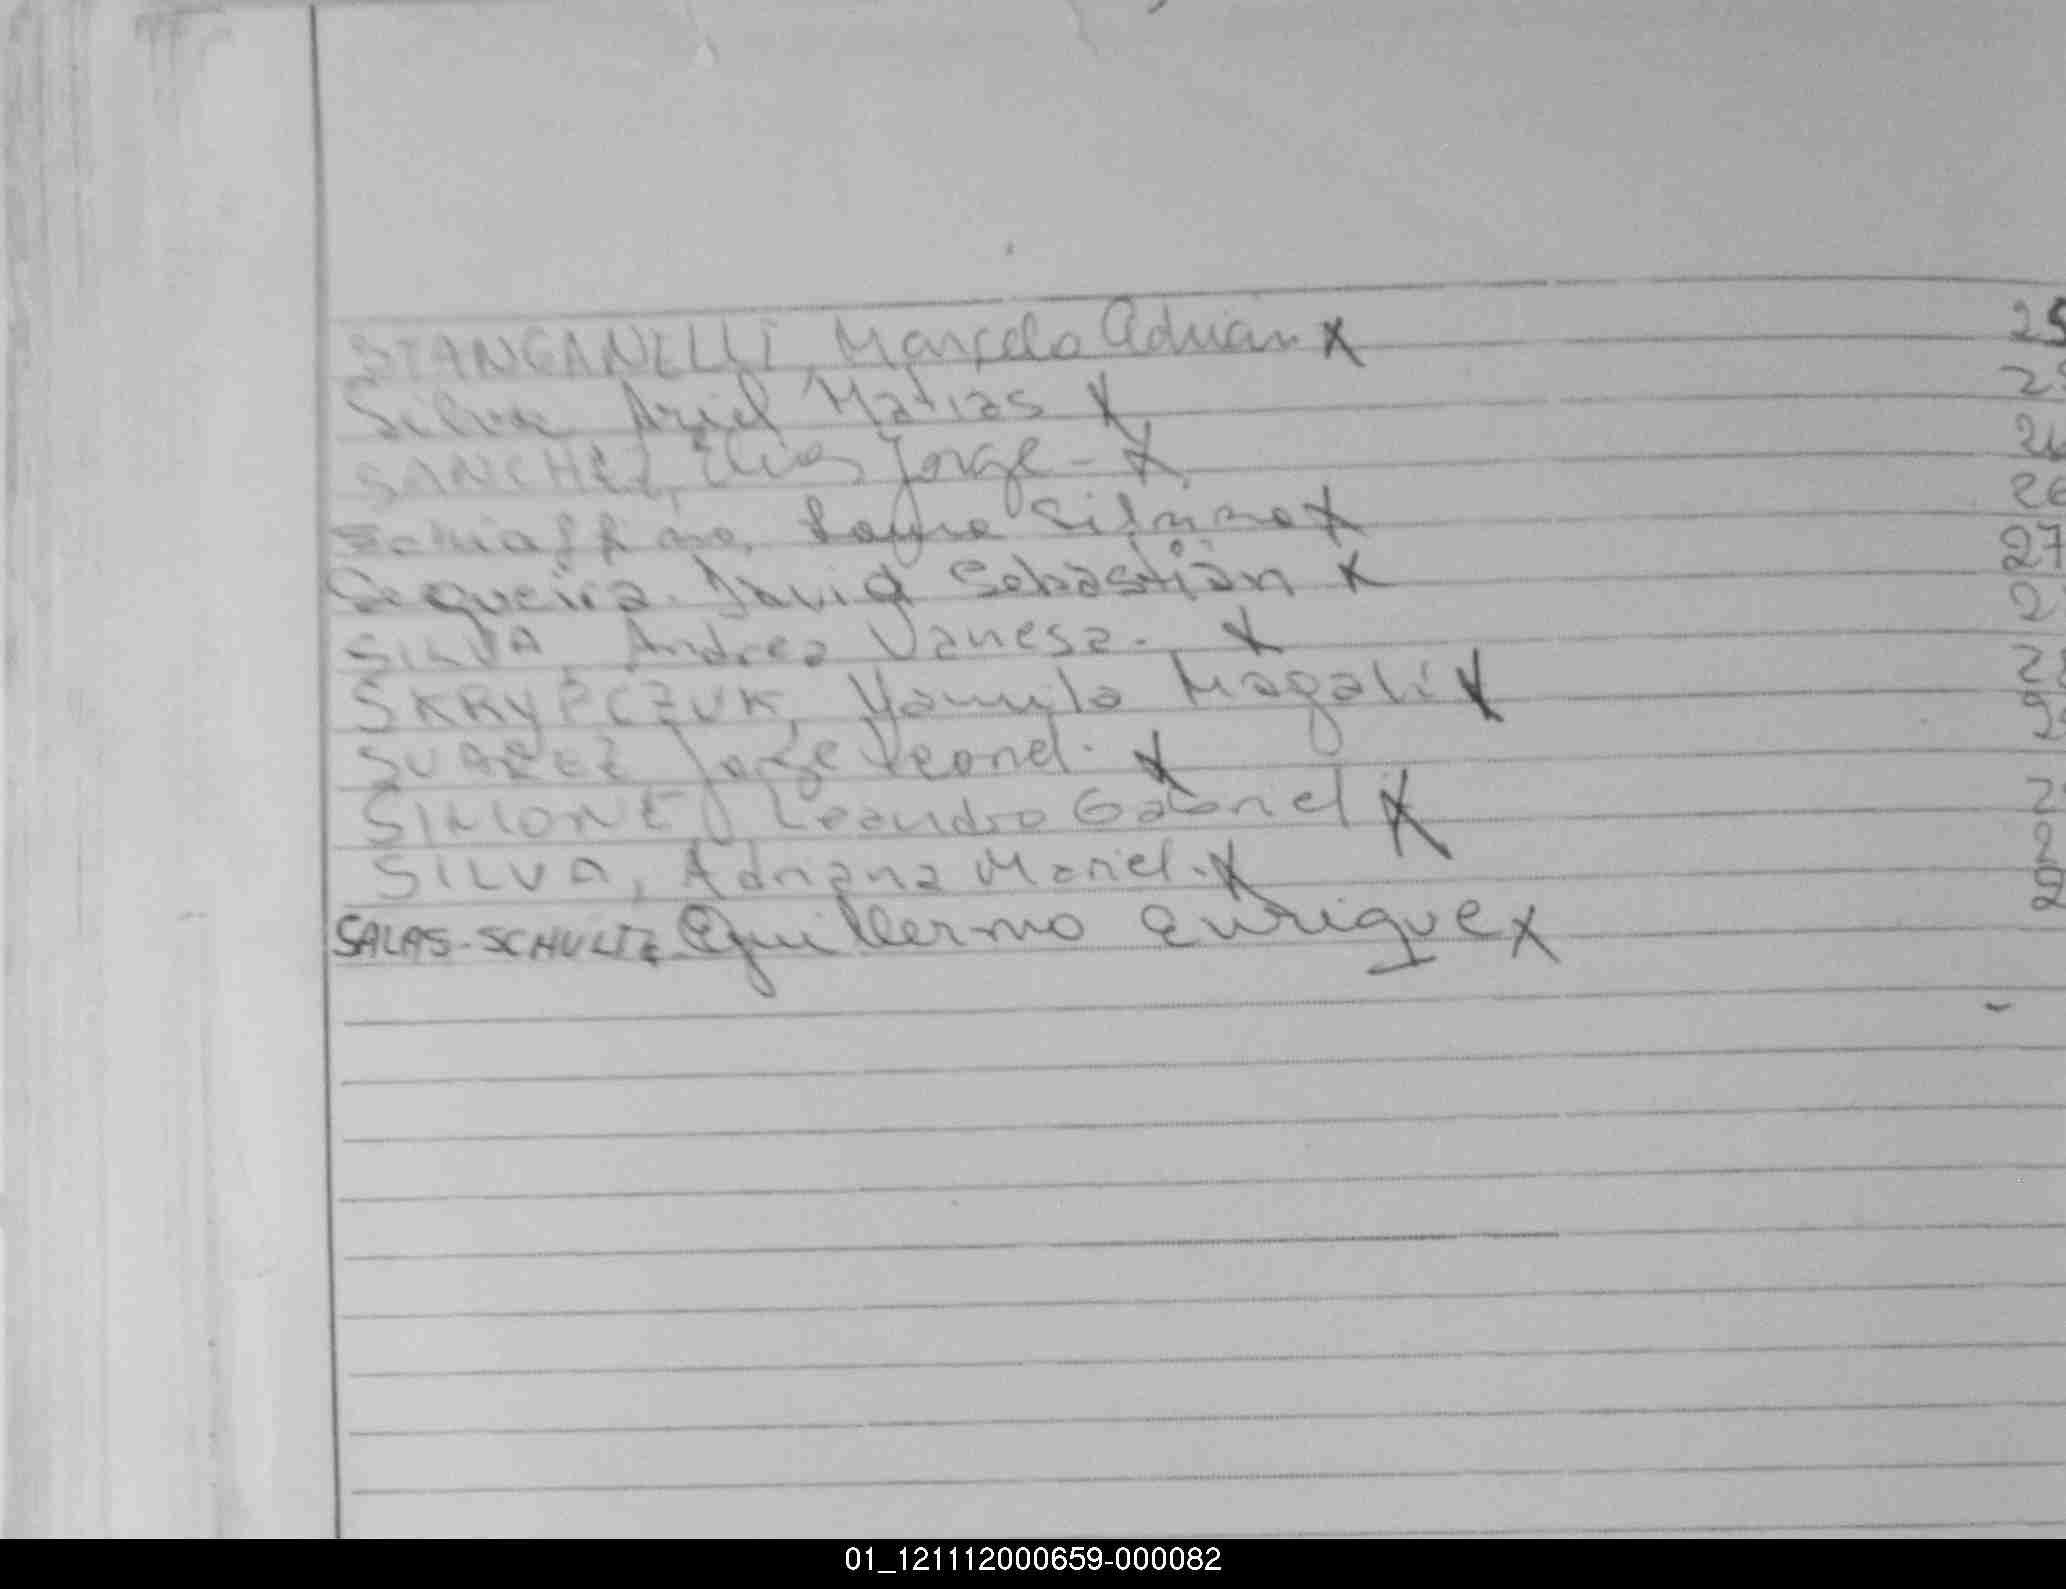 STANGANELLI, Marcelo Adrian X 25
Silva Ariel Matias X 2
SANCHEZ, Elias Jorge - X 26
Schiaffino, Laura Silvina X 26
Sequeira. David Sebastián X 27
SILVA, Andrea Vanesa. X 2
SKRYPCZUK, Yamila Magali X 28
SUAREZ Jorge Leonel. X 2
SIMONE, Leandro Gabriel X 2
SILVA, Adriana Mariel. X 2
SALAS-SCHULTZ Guillermo Enrique X 2
01_121112000659-000082